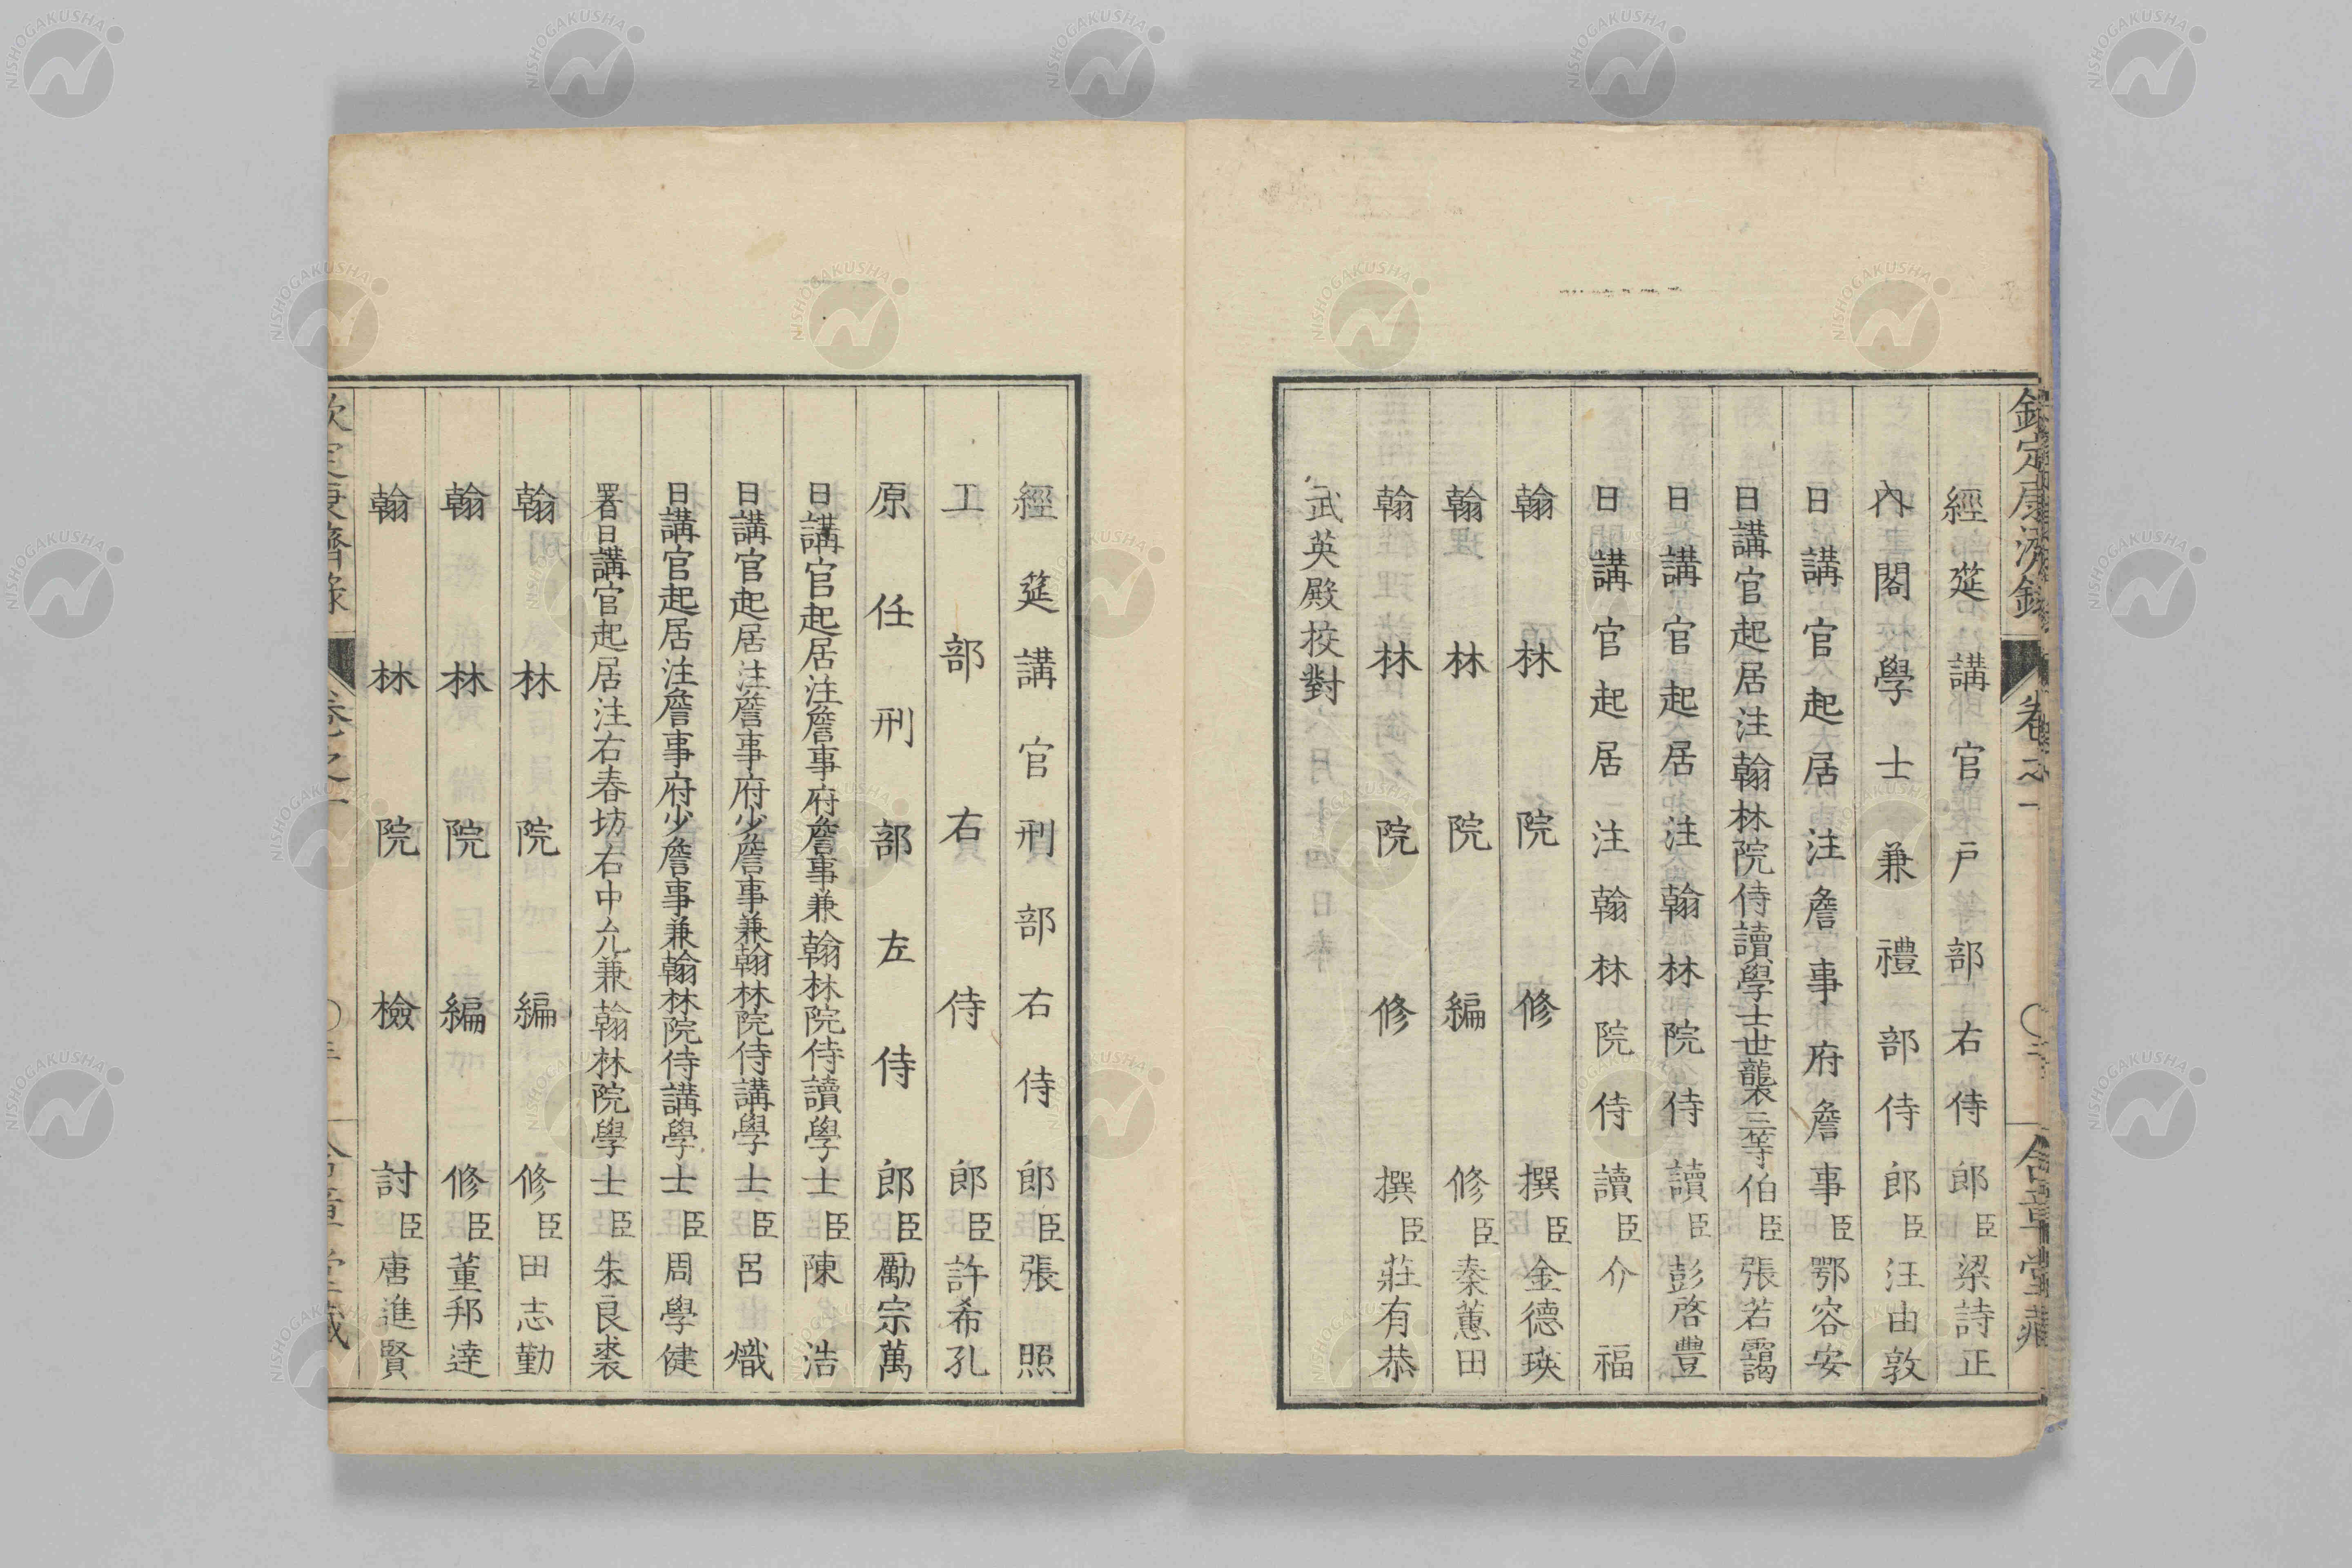 欽定康濟錄 卷之一 含章堂藏
經筵講官戶部右侍郎臣梁詩正
內閣學士兼禮部侍郎臣汪由敦
日講官起居注詹事府詹事臣鄂容安
日講官起居注翰林院侍讀學士世襲三等伯臣張若靄
日講官起居注翰林院侍讀臣彭啓豐
日講官起居注翰林院侍讀臣介福
翰林院修撰臣金德瑛
翰林院編修臣秦蕙田
翰林院修撰臣莊有恭
武英殿校對
經筵講官刑部右侍郎臣張照
工部右侍郎臣許希孔
原任刑部左侍郎臣勵宗萬
日講官起居注詹事府詹事兼翰林院侍讀學士臣陳浩
日講官起居注詹事府少詹事兼翰林院侍講學士臣呂熾
日講官起居注詹事府少詹事兼翰林院侍講學士臣周學健
署日講官起居注右春坊右中允兼翰林院學士臣朱良裘
翰林院編修臣田志勤
翰林院編修臣董邦達
翰林院檢討臣唐進賢
欽定康濟錄 卷之一 含章堂藏
NISHOGAKUSHA
NISHOGAKUSHA
NISHOGAKUSHA
NISHOGAKUSHA
NISHOGAKUSHA
NISHOGAKUSHA
NISHOGAKUSHA
NISHOGAKUSHA
NISHOGAKUSHA
NISHOGAKUSHA
NISHOGAKUSHA